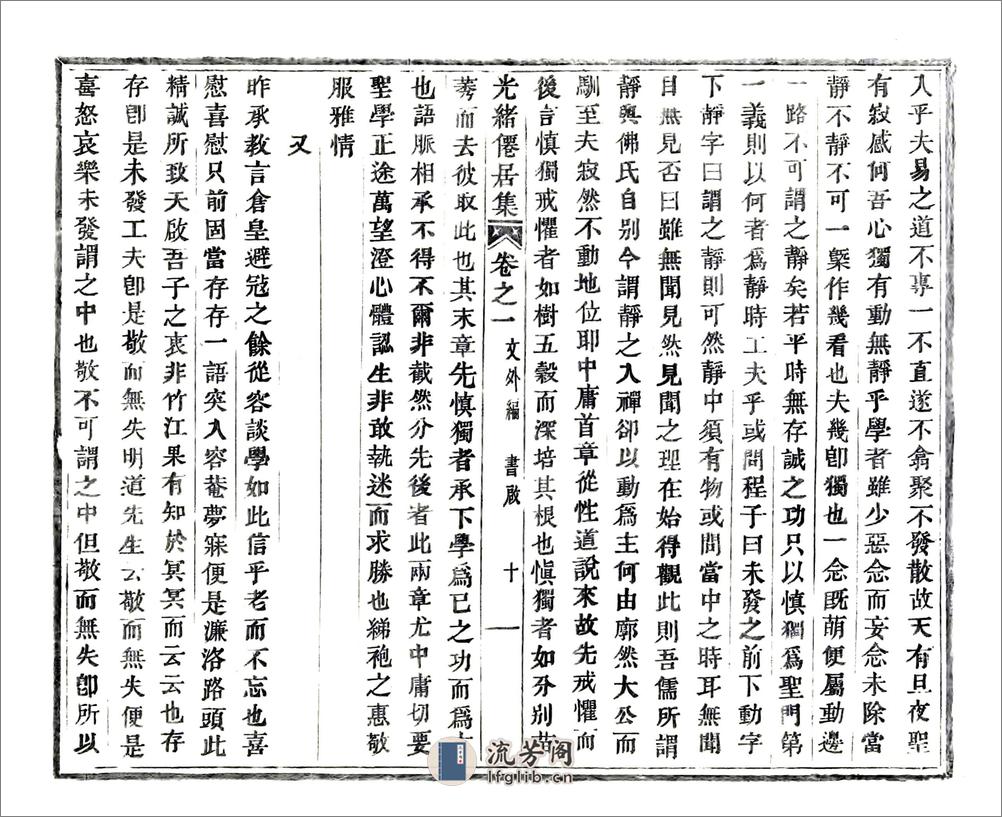 入乎夫易之道不專一不直遂不翕聚不發散故天有旦夜聖
有寂感何吾心獨有動無靜乎學者雖少惡念而妄念未除當
靜不靜不可一槩作幾看也夫幾卽獨也一念既萌便屬動邊
一路不可謂之靜矣若平時無存誠之功只以慎獨爲聖門第
一義則以何者爲靜時工夫乎或問程子曰未發之前下動字
下靜字曰謂之靜則可然靜中須有物或問當中之時耳無聞
目無見否曰雖無聞見然見聞之理在始得觀此則吾儒所謂
靜與佛氏自别今謂靜之入禪卻以動爲主何由廓然大公而
馴至夫寂然不動地位耶中庸首章從性道說來故先戒懼而
後言慎獨戒懼者如樹五穀而深培其根也慎獨者如分别苗
光緒僊居集 卷之一 文外編 書啟 十
莠而去彼取此也其末章先慎獨者承下學爲已之功而爲
也語脈相承不得不爾非截然分先後者此兩章尤中庸切要
聖學正途萬望澄心體認生非敢執迷而求勝也綈袍之惠敬
服雅情
又
昨承教言倉皇避寇之餘從容談學如此信乎老而不忘也喜
慰喜慰只前固當存存一語突入容菴夢寐便是濂洛路頭此
精誠所致天啟吾子之衷非竹江果有知於冥冥而云云也存
存卽是未發工夫卽是敬而無失明道先生云敬而無失便是
喜怒哀樂未發謂之中也敬不可謂之中但敬而無失卽所以
流芳阁
lfglib.cn